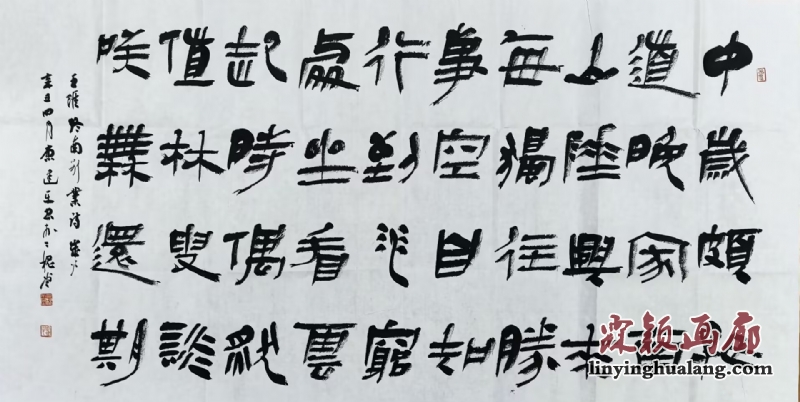 中歲頗好
道晚家南
山陲興來
每獨往勝
事空自知
行到水窮
處坐看雲
起時偶然
值林叟談
笑無還期
王維終南別業詩
辛丑四月
霖颖画廊
linyinghualang.com